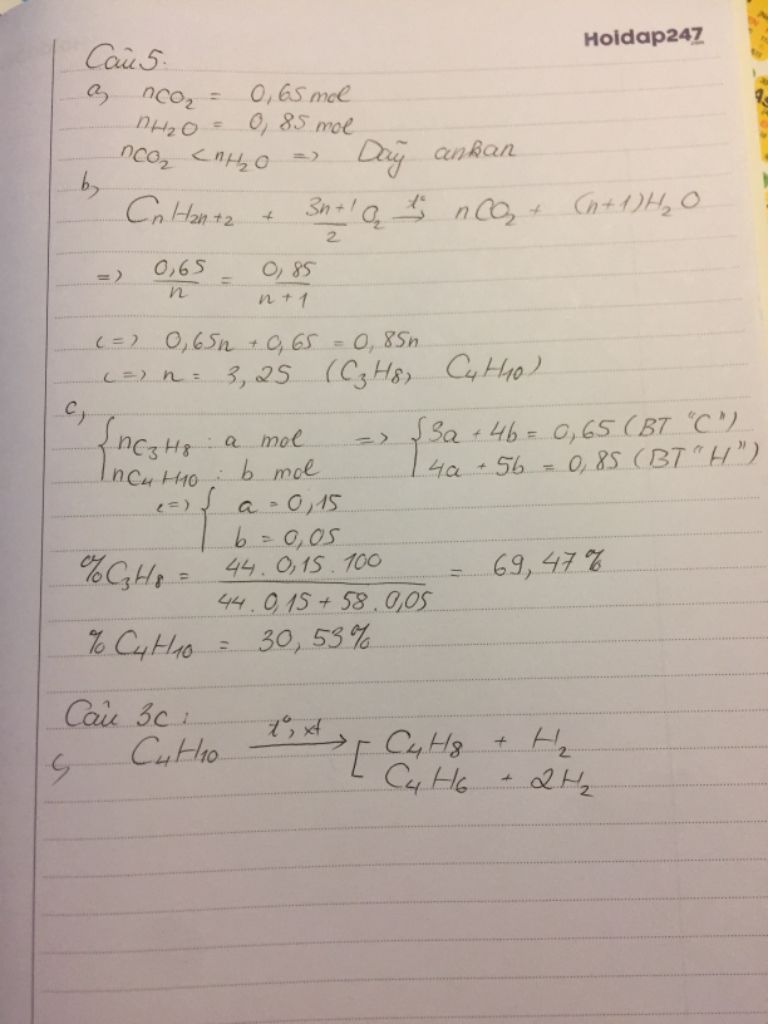 Hoidap247
.com
Câu 5.
a, nCO₂ = 0,65 mol
nH₂O = 0,85 mol
nCO₂ < nH₂O => Dãy ankan
b,
CnH2n+2 + (3n+1)/2 O₂ t°→ nCO₂ + (n+1)H₂O
=> 0,65/n = 0,85/(n+1)
<=> 0,65n + 0,65 = 0,85n
<=> n = 3,25 (C₃H₈, C₄H₁₀)
c,
{ nC₃H₈ : a mol => { 3a + 4b = 0,65 (BT "C")
nC₄H₁₀ : b mol 4a + 5b = 0,85 (BT "H")
<=> { a = 0,15
b = 0,05
%C₃H₈ = (44 . 0,15 . 100)/(44 . 0,15 + 58 . 0,05) = 69,47 %
% C₄H₁₀ = 30,53%
Câu 3c :
C₄H₁₀ t°, xt→ [ C₄H₈ + H₂
C₄H₆ + 2H₂